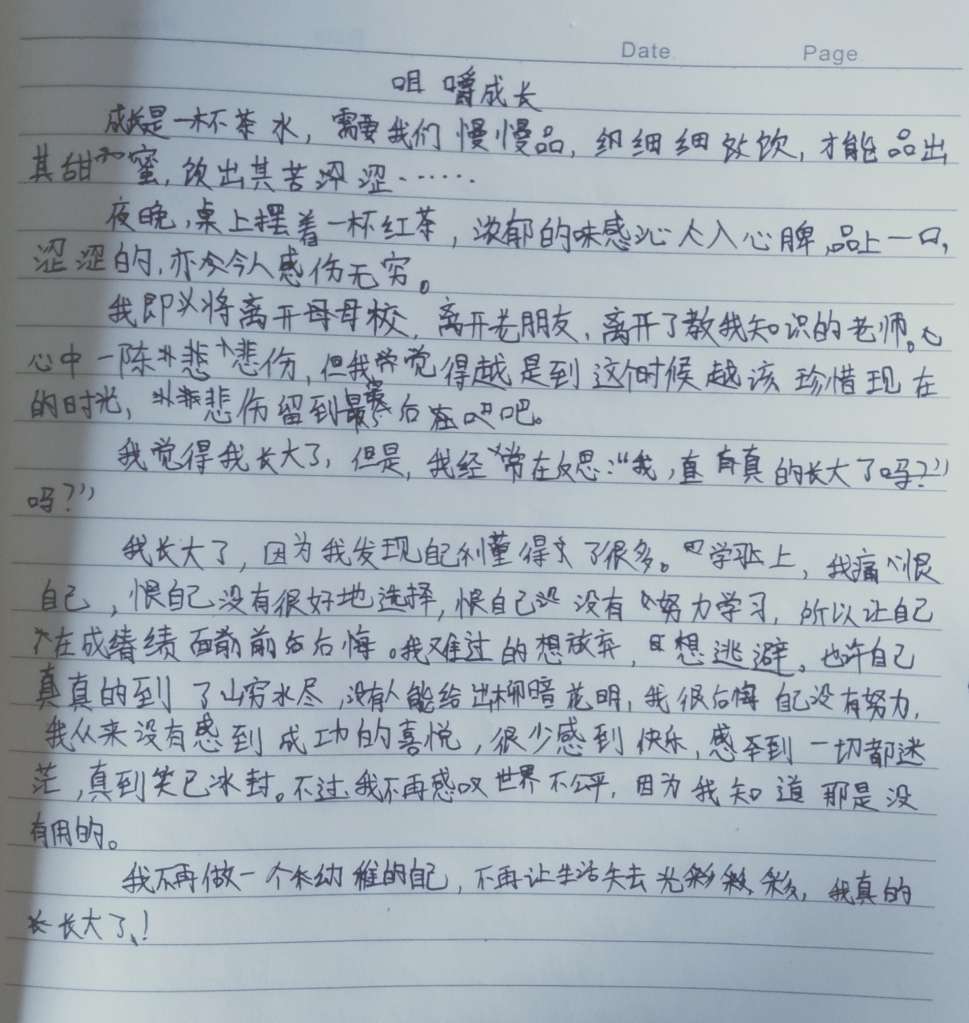 Date Page
咀嚼成长
成长是一杯茶水，需要我们慢慢品，细细饮，才能品出
其甜和蜜，饮出其苦涩……
夜晚，桌上摆着一杯红茶，浓郁的味感沁人入心脾，品上一口，
涩涩的，亦令人感伤无穷。
我即将离开母校，离开老朋友，离开了教我知识的老师。心
心中一阵悲伤，但我觉得越是到这个时候越该珍惜现在
的时光，悲伤留到最后吧。
我觉得我长大了，但是，我经常在反思：“我，真的长大了吗？”
吗？”
我长大了，因为我发现自己懂得了很多。学业上，我痛恨
自己，恨自己没有很好地选择，恨自己没有努力学习，所以让自己
在成绩面前后悔。我难过的想放弃，想逃避。也许自己
真的到了山穷水尽，没有人能给出柳暗花明，我很后悔自己没有努力，
我从来没有感到成功的喜悦，很少感到快乐，感到一切都迷
茫，真到笑已冰封。不过我不再感叹世界不公平，因为我知道那是没
有用的。
我不再做一个幼稚的自己，不再让生活失去光彩，我真的
长大了！